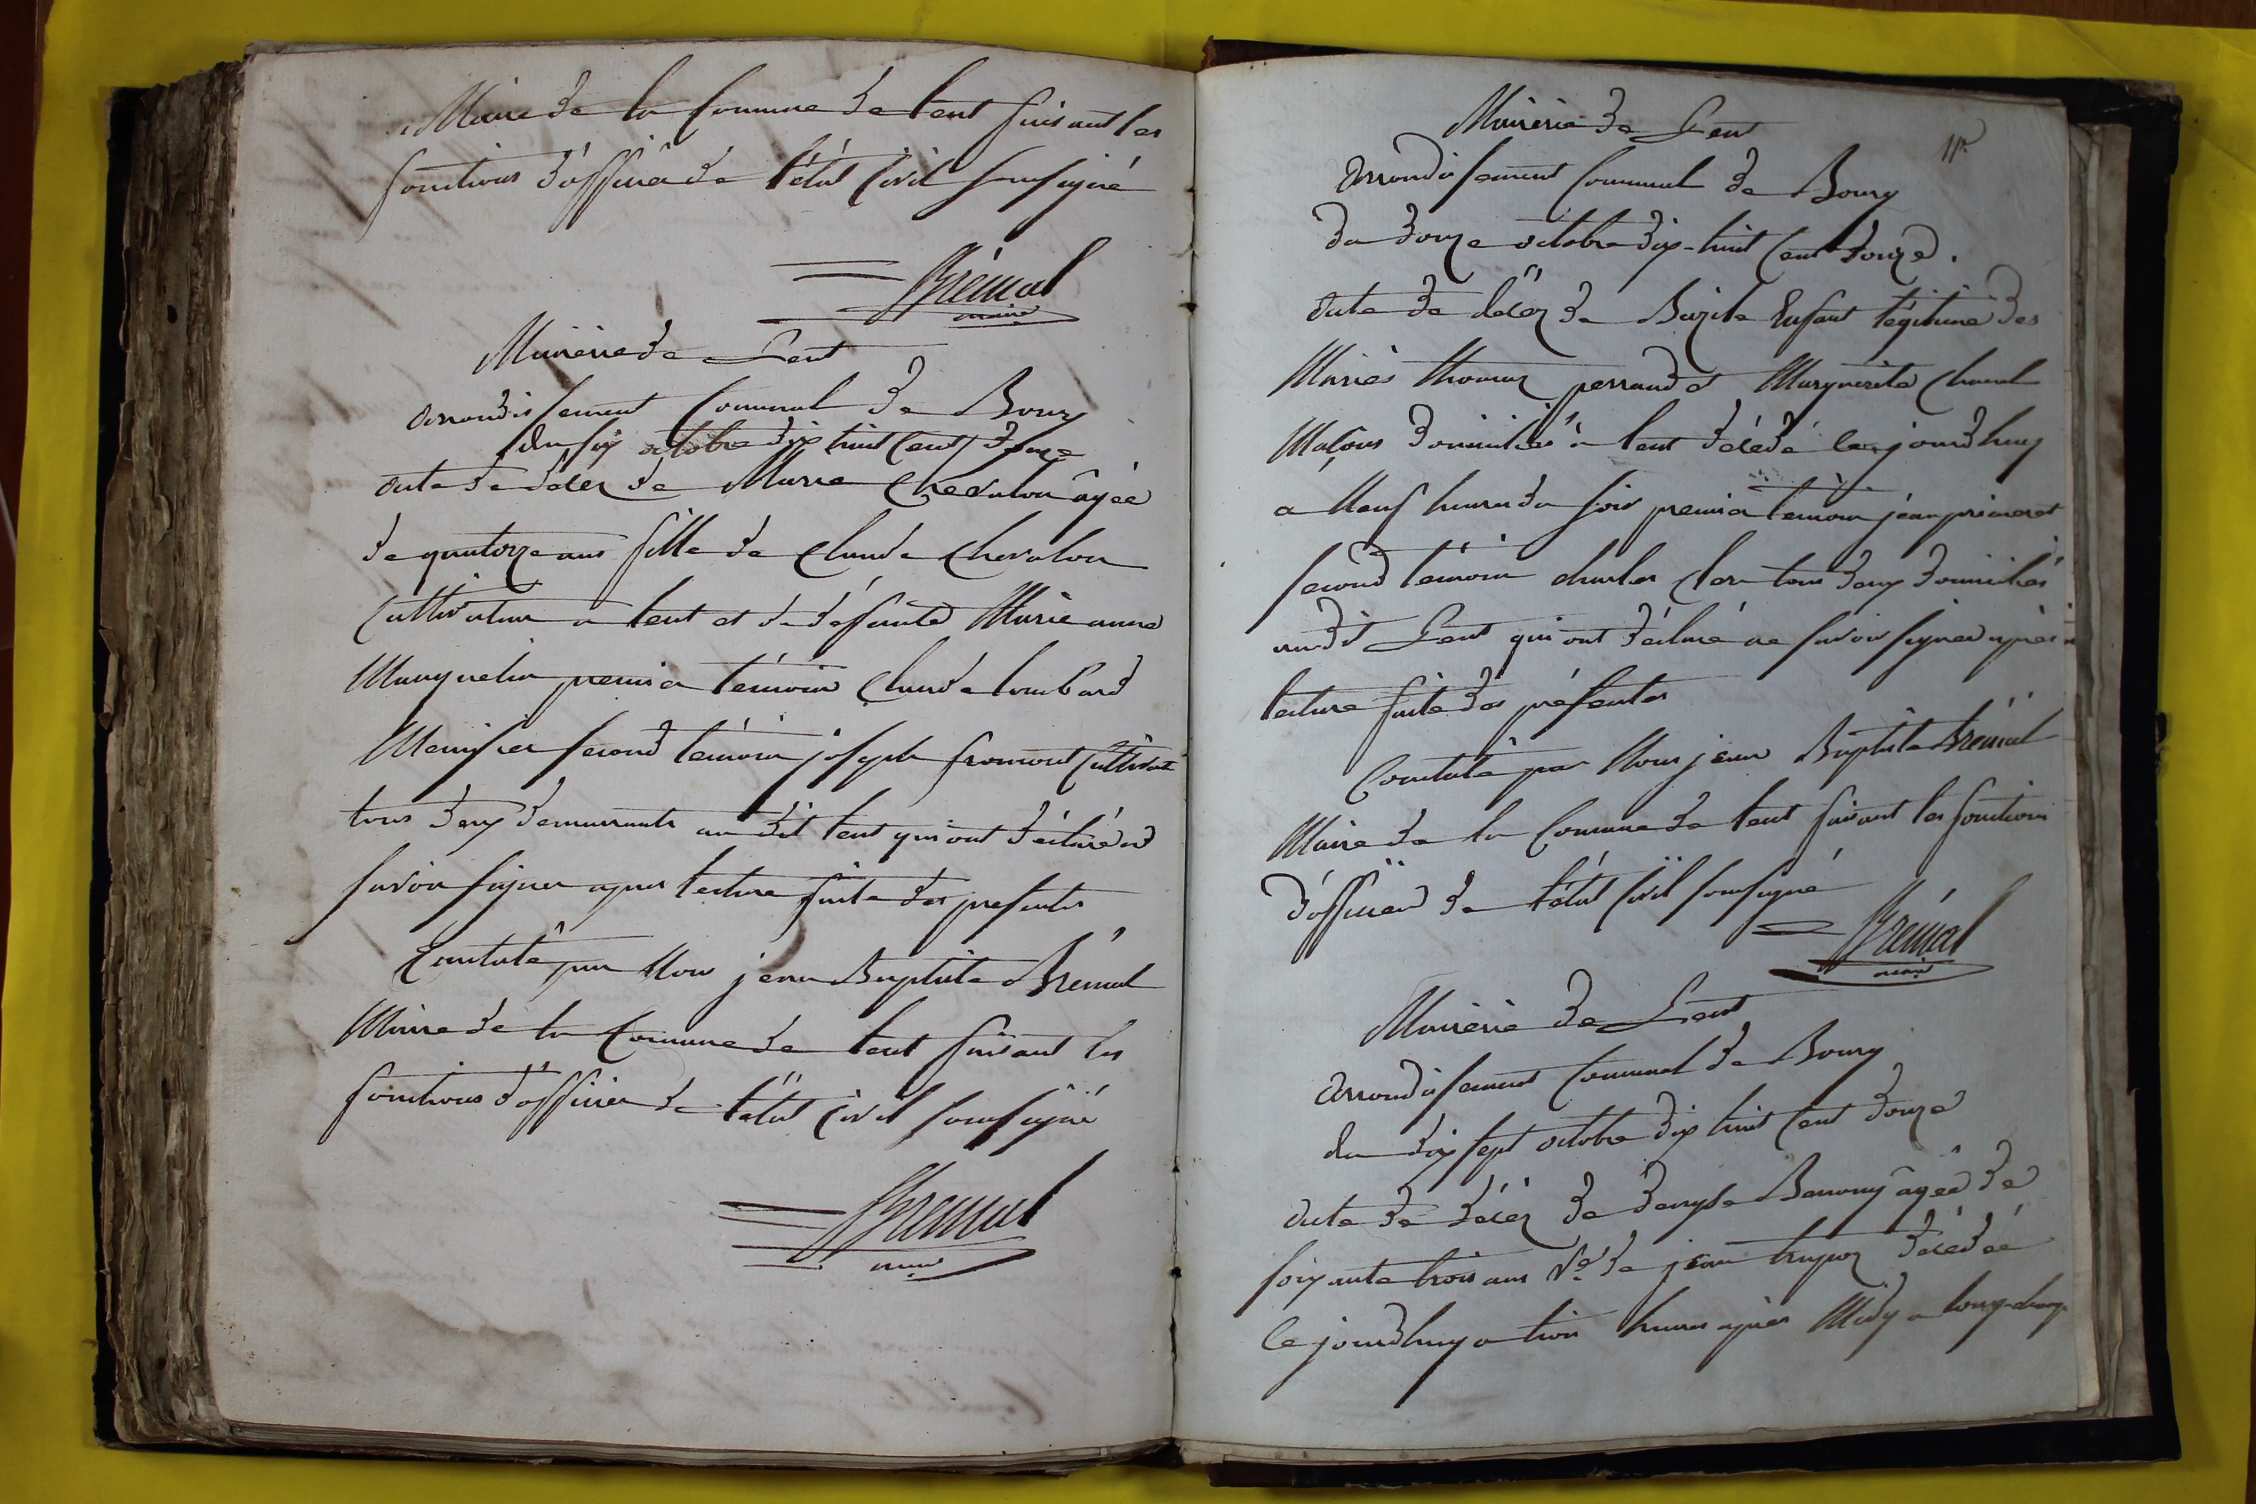 Maire de la Commune de lent faisant les
fonctions d'officier de l'état Civil soussigné
Brémal
maire
Mairerie de Lent
arrondissement Communal de Bourg
du six octobre dix huit Cent douze
acte de décez de Marie Chevalon âgée
de quatorze ans fille de Claude Chevalon
Cultivateur a lent et de défunte Marie anne
premier témoin Claude lombard
Menusier second témoin joseph fromont Cultivat
tous deux demeurants au dit lent qui ont déclaré ne
savoir signer apres lecture faite des presentes
Constaté par Nous jean Baptiste Brémal
Maire de la Commune de lent faisant les
fonctions d'officier de l'état Civil soussigné
Brémal
maire
Mairerie de Lent
arrondissement Communal de Bourg
du douze octobre dix-huit Cent douze.
acte de décez de Enfant légitime des
Mariés thomas perraud et Marguerite Chanel
Maçons domiciliés a lent décédé le jourdhuy
a Neuf heures du soir premier témoin jean
second témoin charles Clere tous deux domiciliés
audit Lent qui ont déclaré ne savoir signer après
lecture faite des présentes
Constaté par Nous jean Baptiste Brémal
Maire de la Commune de lent faisant les fonctions
d'officier de l'état Civil soussigné
Brémal
maire
Mairerie de Lent
arrondissement Communal de Bourg
du dix sept octobre dix huit Cent douze
acte de décez de denyse âgée de
soixante trois ans Ve. de jean décédée
le jourdhuy a trois heures après Midy a longchamp